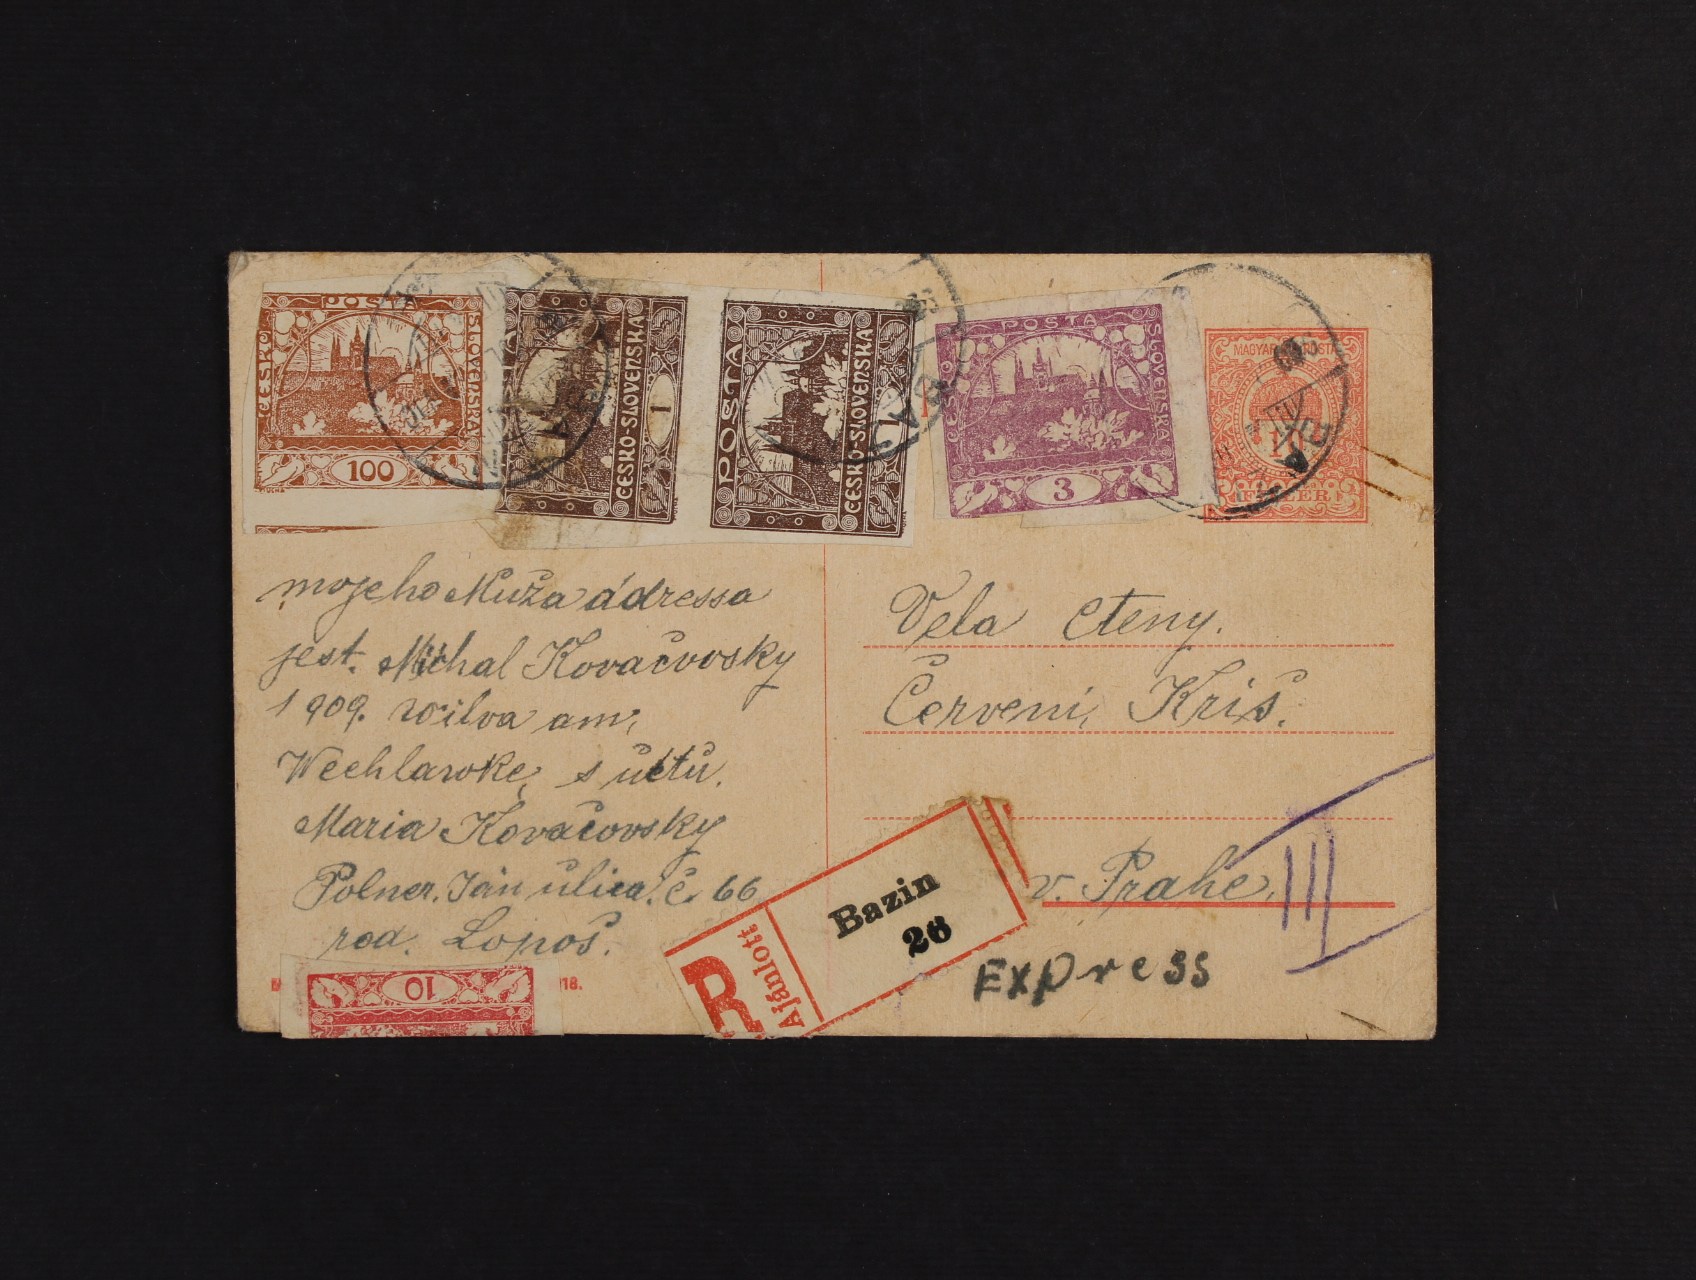 POSTA
ČESKO
SLOVENSKÁ
100
MUCHA
POSTA
ČESKO-SLOVENSKÁ
1
POSTA
ČESKO-SLOVENSKÁ
1
POSTA
ČESKO
SLOVENSKÁ
3
MAGYAR POSTA
FILLÉR
mojeho Muža ádressa
jest. Michal Kovačvosky
1909. wilva am,
Wechlawke, s uctu.
Maria Kovačovsky
Polner. Ján ulica. č. 66
rod. Lopoš.
Vela Cteny.
Červeni, Kriš.
v. Prahe,
III
10
18.
R
Ajánlott
Bazin
26
Express